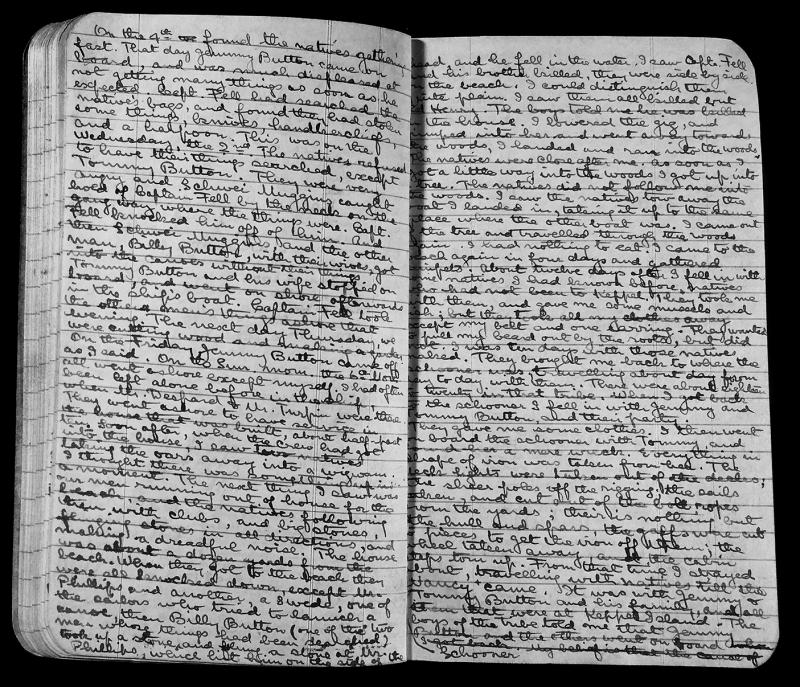 On the 4th found the natives gathering
fast. That day Jemmy Button came on
board, and was much displeased at
not getting many things as soon as he
expected. Capt. Fell had searched the
natives bags, and found they had stolen
some things, knives, handkerchiefs
and a harpoon. This was on the
Wednesday, the 2nd. The natives refused
to have their things searched, except
Tommy Button. They were very
angry and Schwei Muggins caught
hold of Captain Fell by the neck on the
gang way where the things were. Capt.
Fell knocked him off of him. And
then Schwei Muggins and the other
man, Billy Button, with their wives, got
into the canoes without their things
Tommy Button and his wife stopped on
board, and went on shore afterwards
in the ship's boat. Captain Fell took
the men's things ashore that
evening. The next day, Thursday, we
were cutting wood and making a garden
On the Friday Jemmy Button came off
as I said. On the Sun. morn. the 6th Nov
all went ashore except myself. I had often
been left alone before in the ship
when Mr. Despard & Mr. Turpin were there
They went ashore to have service in
the house that was built, about half-past
10. Soon after, when the crew had got
into the house, I saw two natives
taking the oars away into a wigwam
I thought there was something up in
a moment. The next thing I saw was
our men running out of house for the
beach, and the natives following
them with clubs, and big stones,
flinging stones in all directions, and
making a dreadful noise. The house
was about a dozen yards from the
beach. When they got to the beach they
were all knocked down, except Mr.
Phillips and another, a Swede, one of
the sailors who tried to launch a
canoe when Billy Button (one of the two
men whose things had been searched)
took up a stone, and flung a stone at Mr.
Phillips, which hit him on the side of the
head, and he fell in the water. I saw Capt. Fell
and his brother killed, they were side by side
the beach. I could distinguish them
quite plain. I saw them all killed but
Henn. The boys told me he was killed
the house. I lowered the gig, and
jumped into her and went away towards
the woods, I landed and ran into the woods
The natives were close after me. as soon as I
got a little way into the woods I got up into
tree. The natives did not follow me into
the woods. I saw the natives tow away the
boat I landed in, taking it up to the same
place where the other boat was. I came out
the tree and travelled through the woods
again. I had nothing to eat. I came to the
beach again in four days and gathered
limpets. About twelve days after I fell in with
natives I had known before, natives
who had not been to Keppel. They took me
with them, and gave me some mussels and
fish; but they took all my clothes away
except my belt and one earring. They wanted
to pull my beard out by the roots, but did
not. I was ten days with those natives
naked. They brought me back to where the
schooner was, travelling about day from
day to day with them. There were about eighteen
or twenty in that tribe. When I got back
to the schooner I fell in with Jemmy and
Tommy Button and their party
They gave me some clothes. I then went
on board the schooner with Tommy, and
found her a mere wreck. Everything in
shape of iron was taken from her. The
deck lights were taken out of the decks;
the sheer poles off the rigging, the sails
stolen, and cut all of the bolt ropes
from the yards; their is nothing but
the hull and spars. the gaffs were cut
to pieces to get the iron off them; the
wheel taken away, the cabin
steps torn up. From that time I strayed
about, travelling with natives till the
Nancy came. It was with Jemmy &
Tommy Button and his family, and all
them that were at Keppel Island. The
boys of the tribe told me that Jemmy
Button and the others went on board
Schooner
My belief is that the cause of